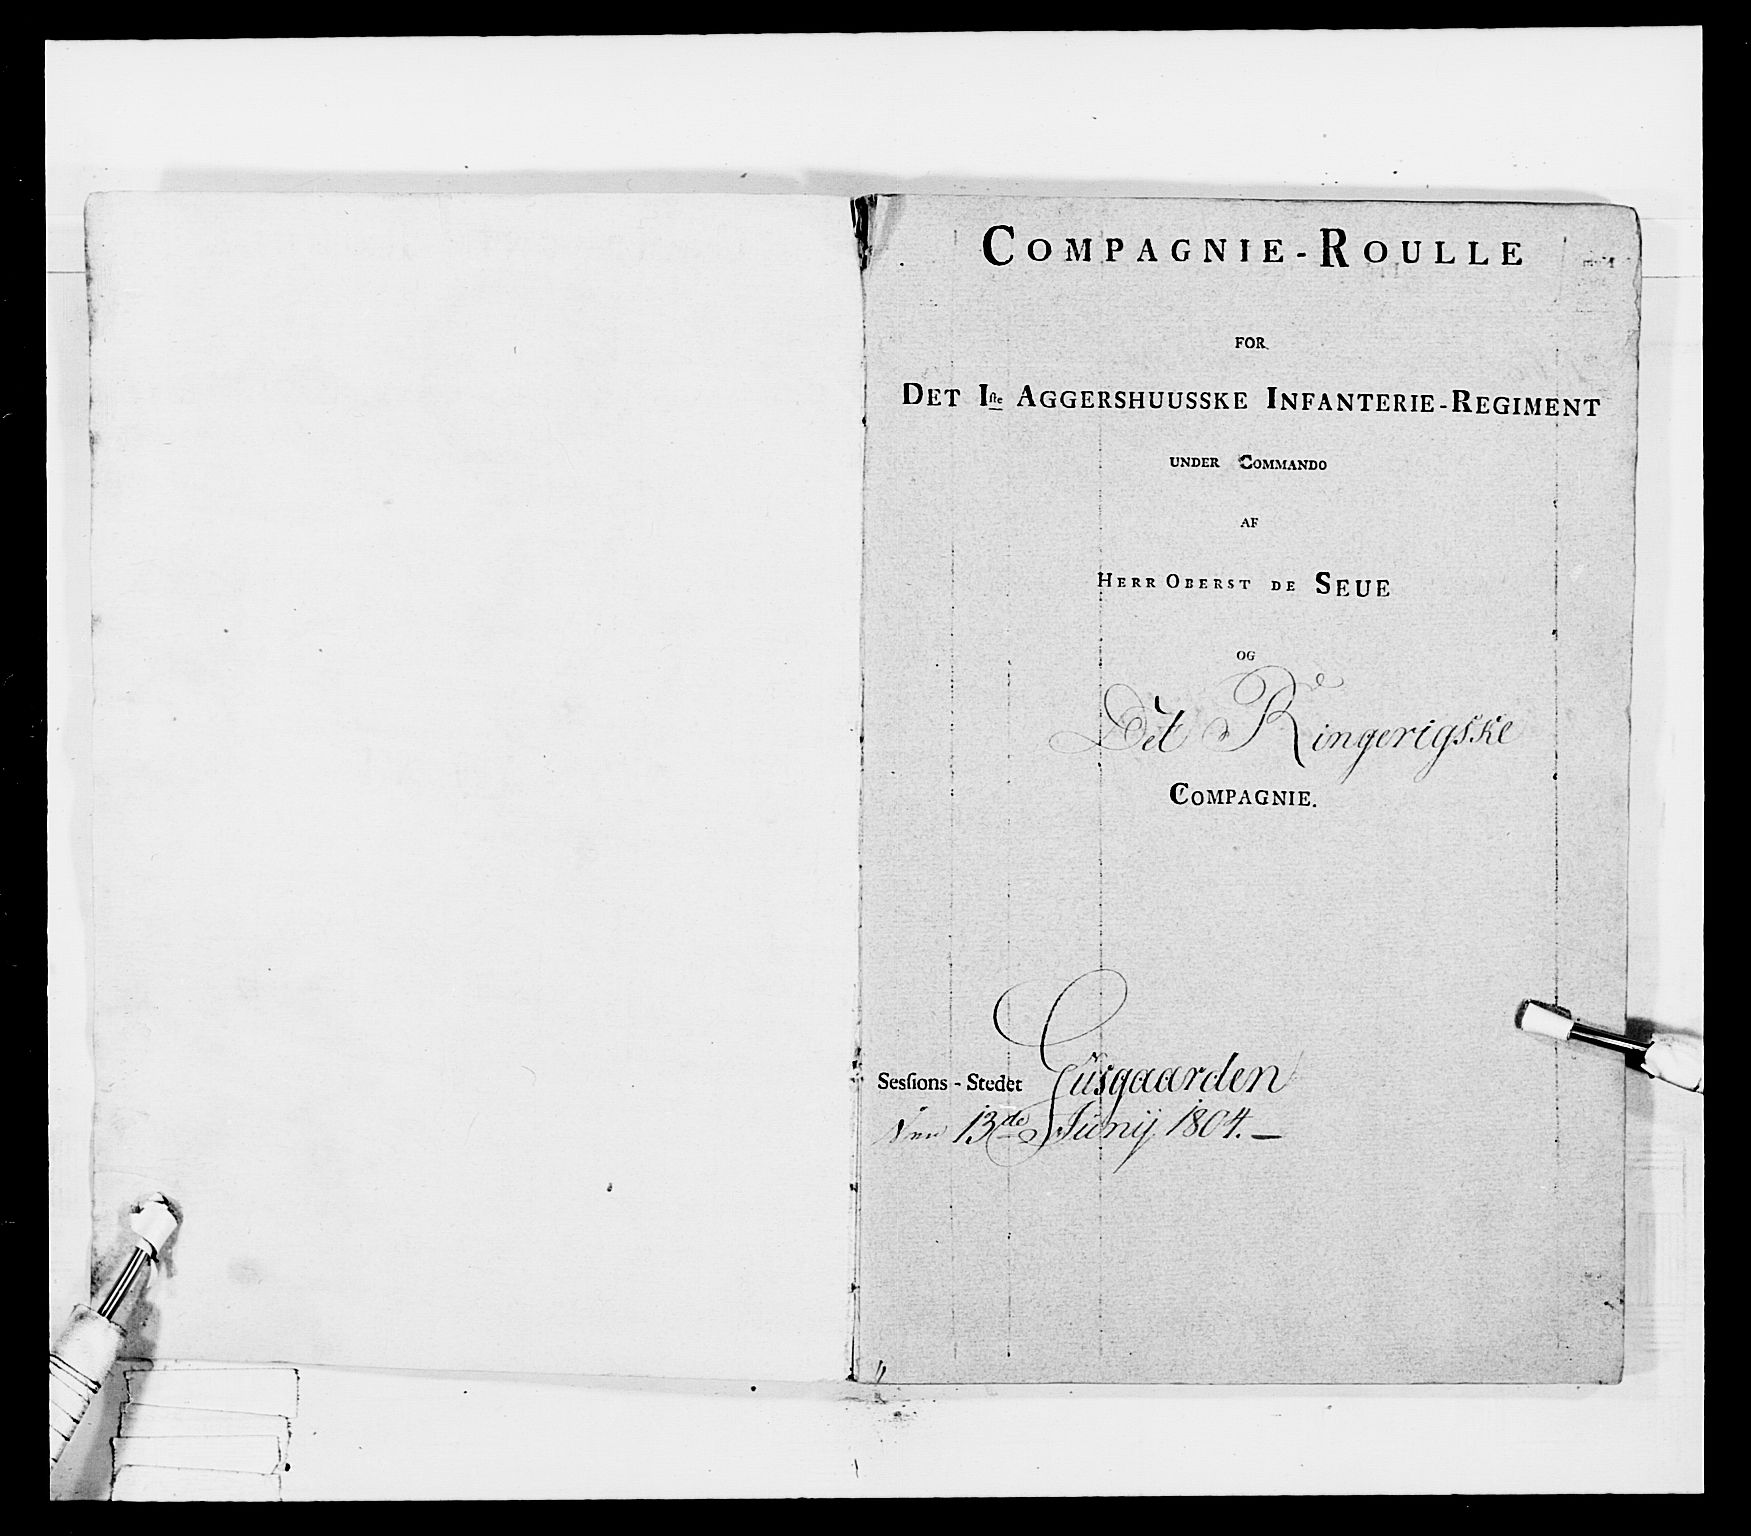 COMPAGNIE-ROULLE
FOR
DET Iſte AGGERSHUUSSKE INFANTERIE-REGIMENT
UNDER COMMANDO
AF
HERR OBERST DE SEUE
OG
Det Ringerigske
COMPAGNIE.
Sesſions-Stedet Gusgaarden
13de Junij 1804.